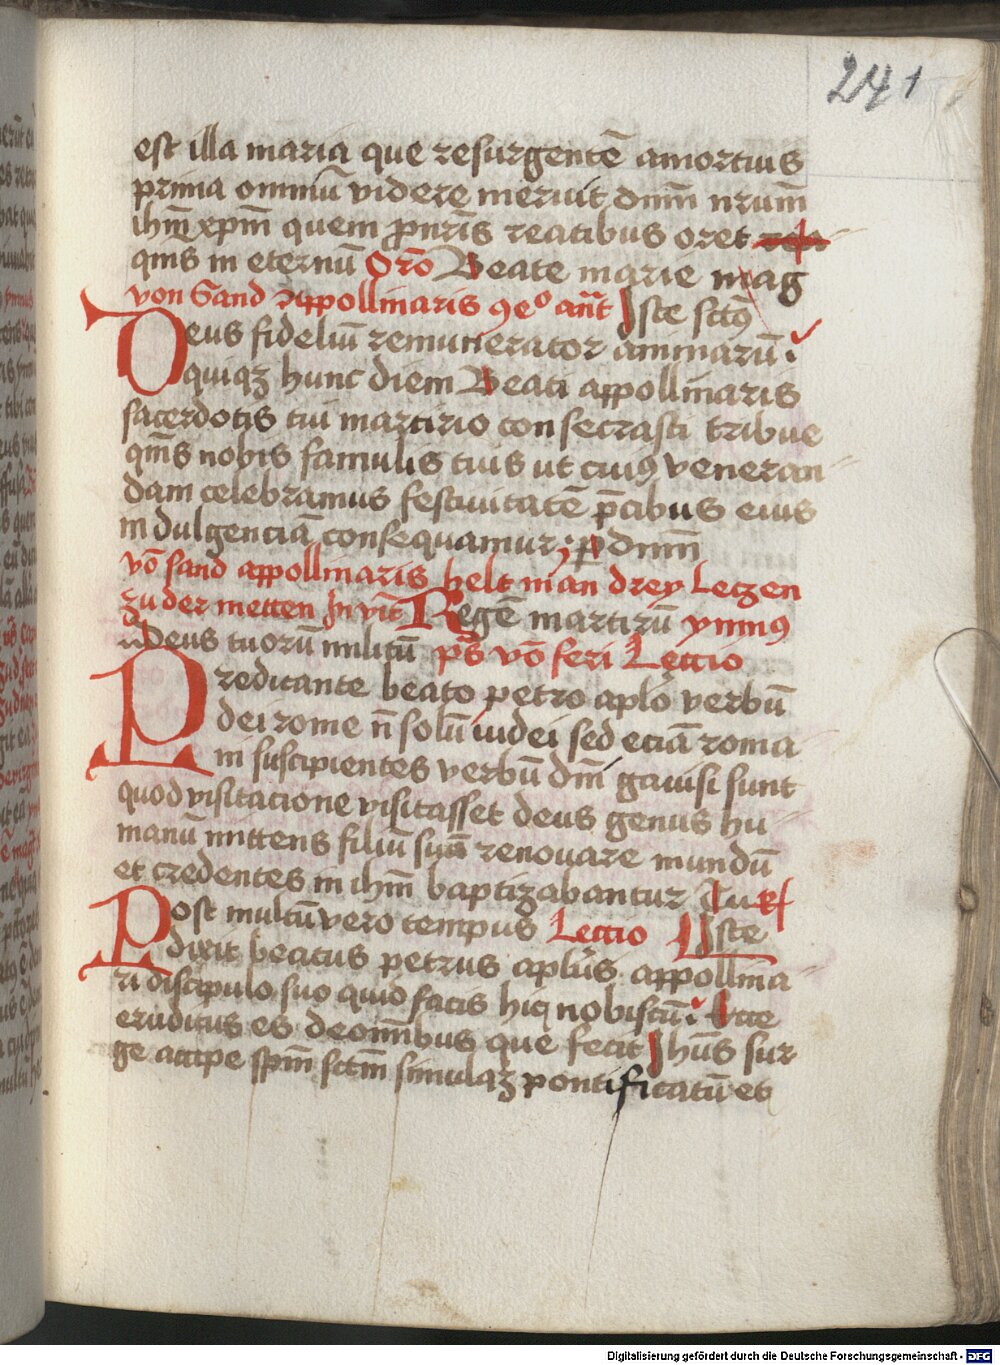 241
est illa maria que resurgentē amortuis
prima omniū videre meruit dnm̄ nrum̄
ihm̄ xpm̄ quem p̄nr̄is reatibus oret
qms in eternū Orō Beate marie mag
von Sand Appollinaris ꝯeº ant̄ Iste sctꝰ
Deus fideliū remunerator animarū.
quiqꝫ hunc diem Beati appollinaris
sacerdotis tui martirio consecrasti tribue
qm̄s nobis famulis tuis ut cuiꝰ veneran
dam celebramus festiuitatē p̄cibus eius
indulgenciā consequamur; p dnm̄
vō sand appollinaris helt man drey Leczen
zu der metten In vit̄ Regē martirū ymnꝰ
Deus tuorū militū ps̄ vō feri Lectio
Predicante beato petro aplo verbū
dei rome n̄ solū iudei sed eciā roma
ni suscipientes verbū dm̄ gauisi sunt
quod visitacione visitasset deus genus hu
manū mittens filiū suū renouare mundū
et credentes in ihm̄ baptizabantur Tu R
Post multū vero tempus Lectio Iste
dixit beatus petrus aplūs appollina
ri discipulo suo quid facis hic nobiscū. Ecce
eruditus es deom̄ibus que fecit Ihūs sur
ge accipe spm̄ sctm̄ simulqꝫ pontificatū et
Digitalisierung gefördert durch die Deutsche Forschungsgemeinschaft - DFG